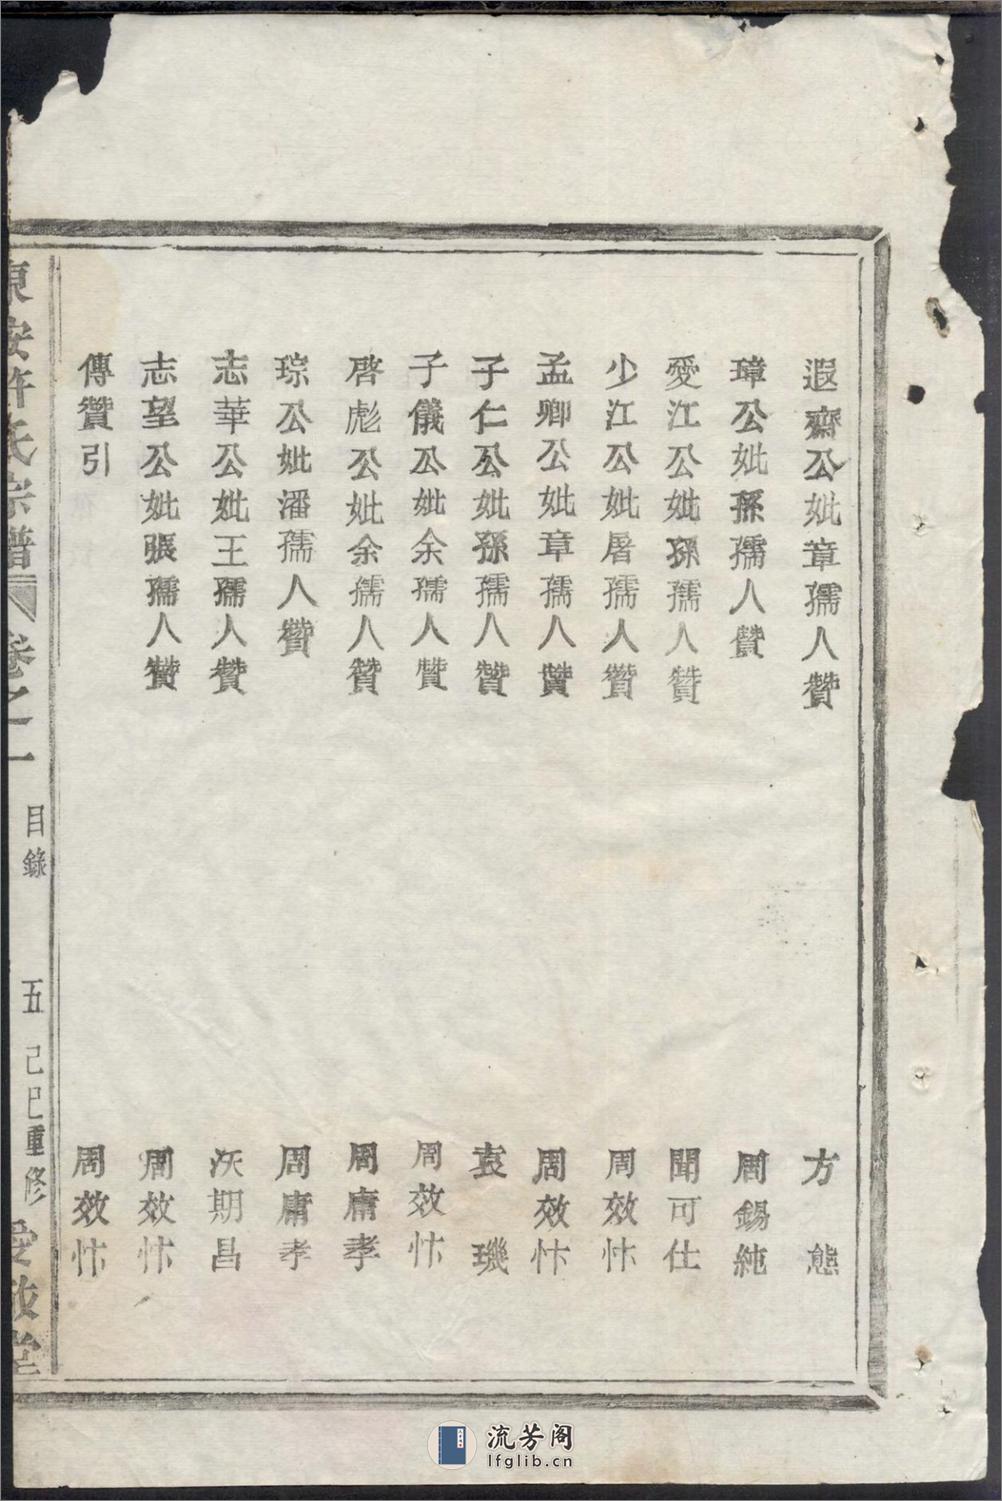 遐齋公妣章孺人贊 方態
璋公妣孫孺人贊 周錫純
愛江公妣孫孺人贊 聞可仕
少江公妣屠孺人贊 周效忭
孟卿公妣章孺人贊 周效忭
子仁公妣孫孺人贊 袁璣
子儀公妣余孺人贊 周效忭
啓彪公妣余孺人贊 周庸孝
琮公妣潘孺人贊 周庸孝
志華公妣王孺人贊 期昌
志望公妣張孺人贊 周效忭
傳贊引 周效忭
東安許氏宗譜 卷之一 目錄 五 己巳重修 愛敬堂
流芳阁
lfglib.cn